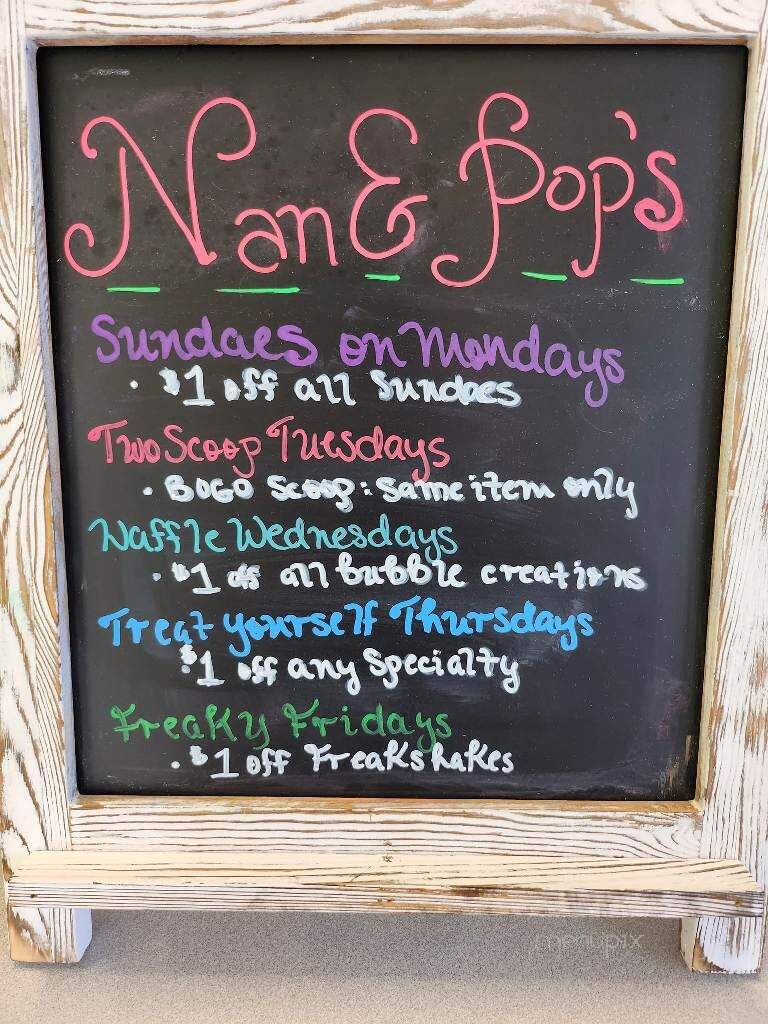 Nan & Pop's
Sundaes on Mondays
· $1 off all Sundaes
Two Scoop Tuesdays
· BOGO Scoop: Same item only
Waffle Wednesdays
· $1 off all Bubble creations
Treat yourself Thursdays
$1 off any Specialty
Freaky Fridays
· $1 off Freakshakes
menupix